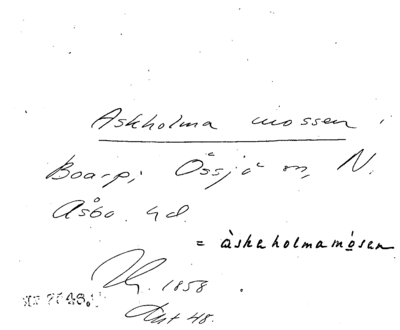 Askholma mossen i
Boarp, Össjö sn, N.
Åsbo hd.
= àskaholmamósan
1858
Ant 48.